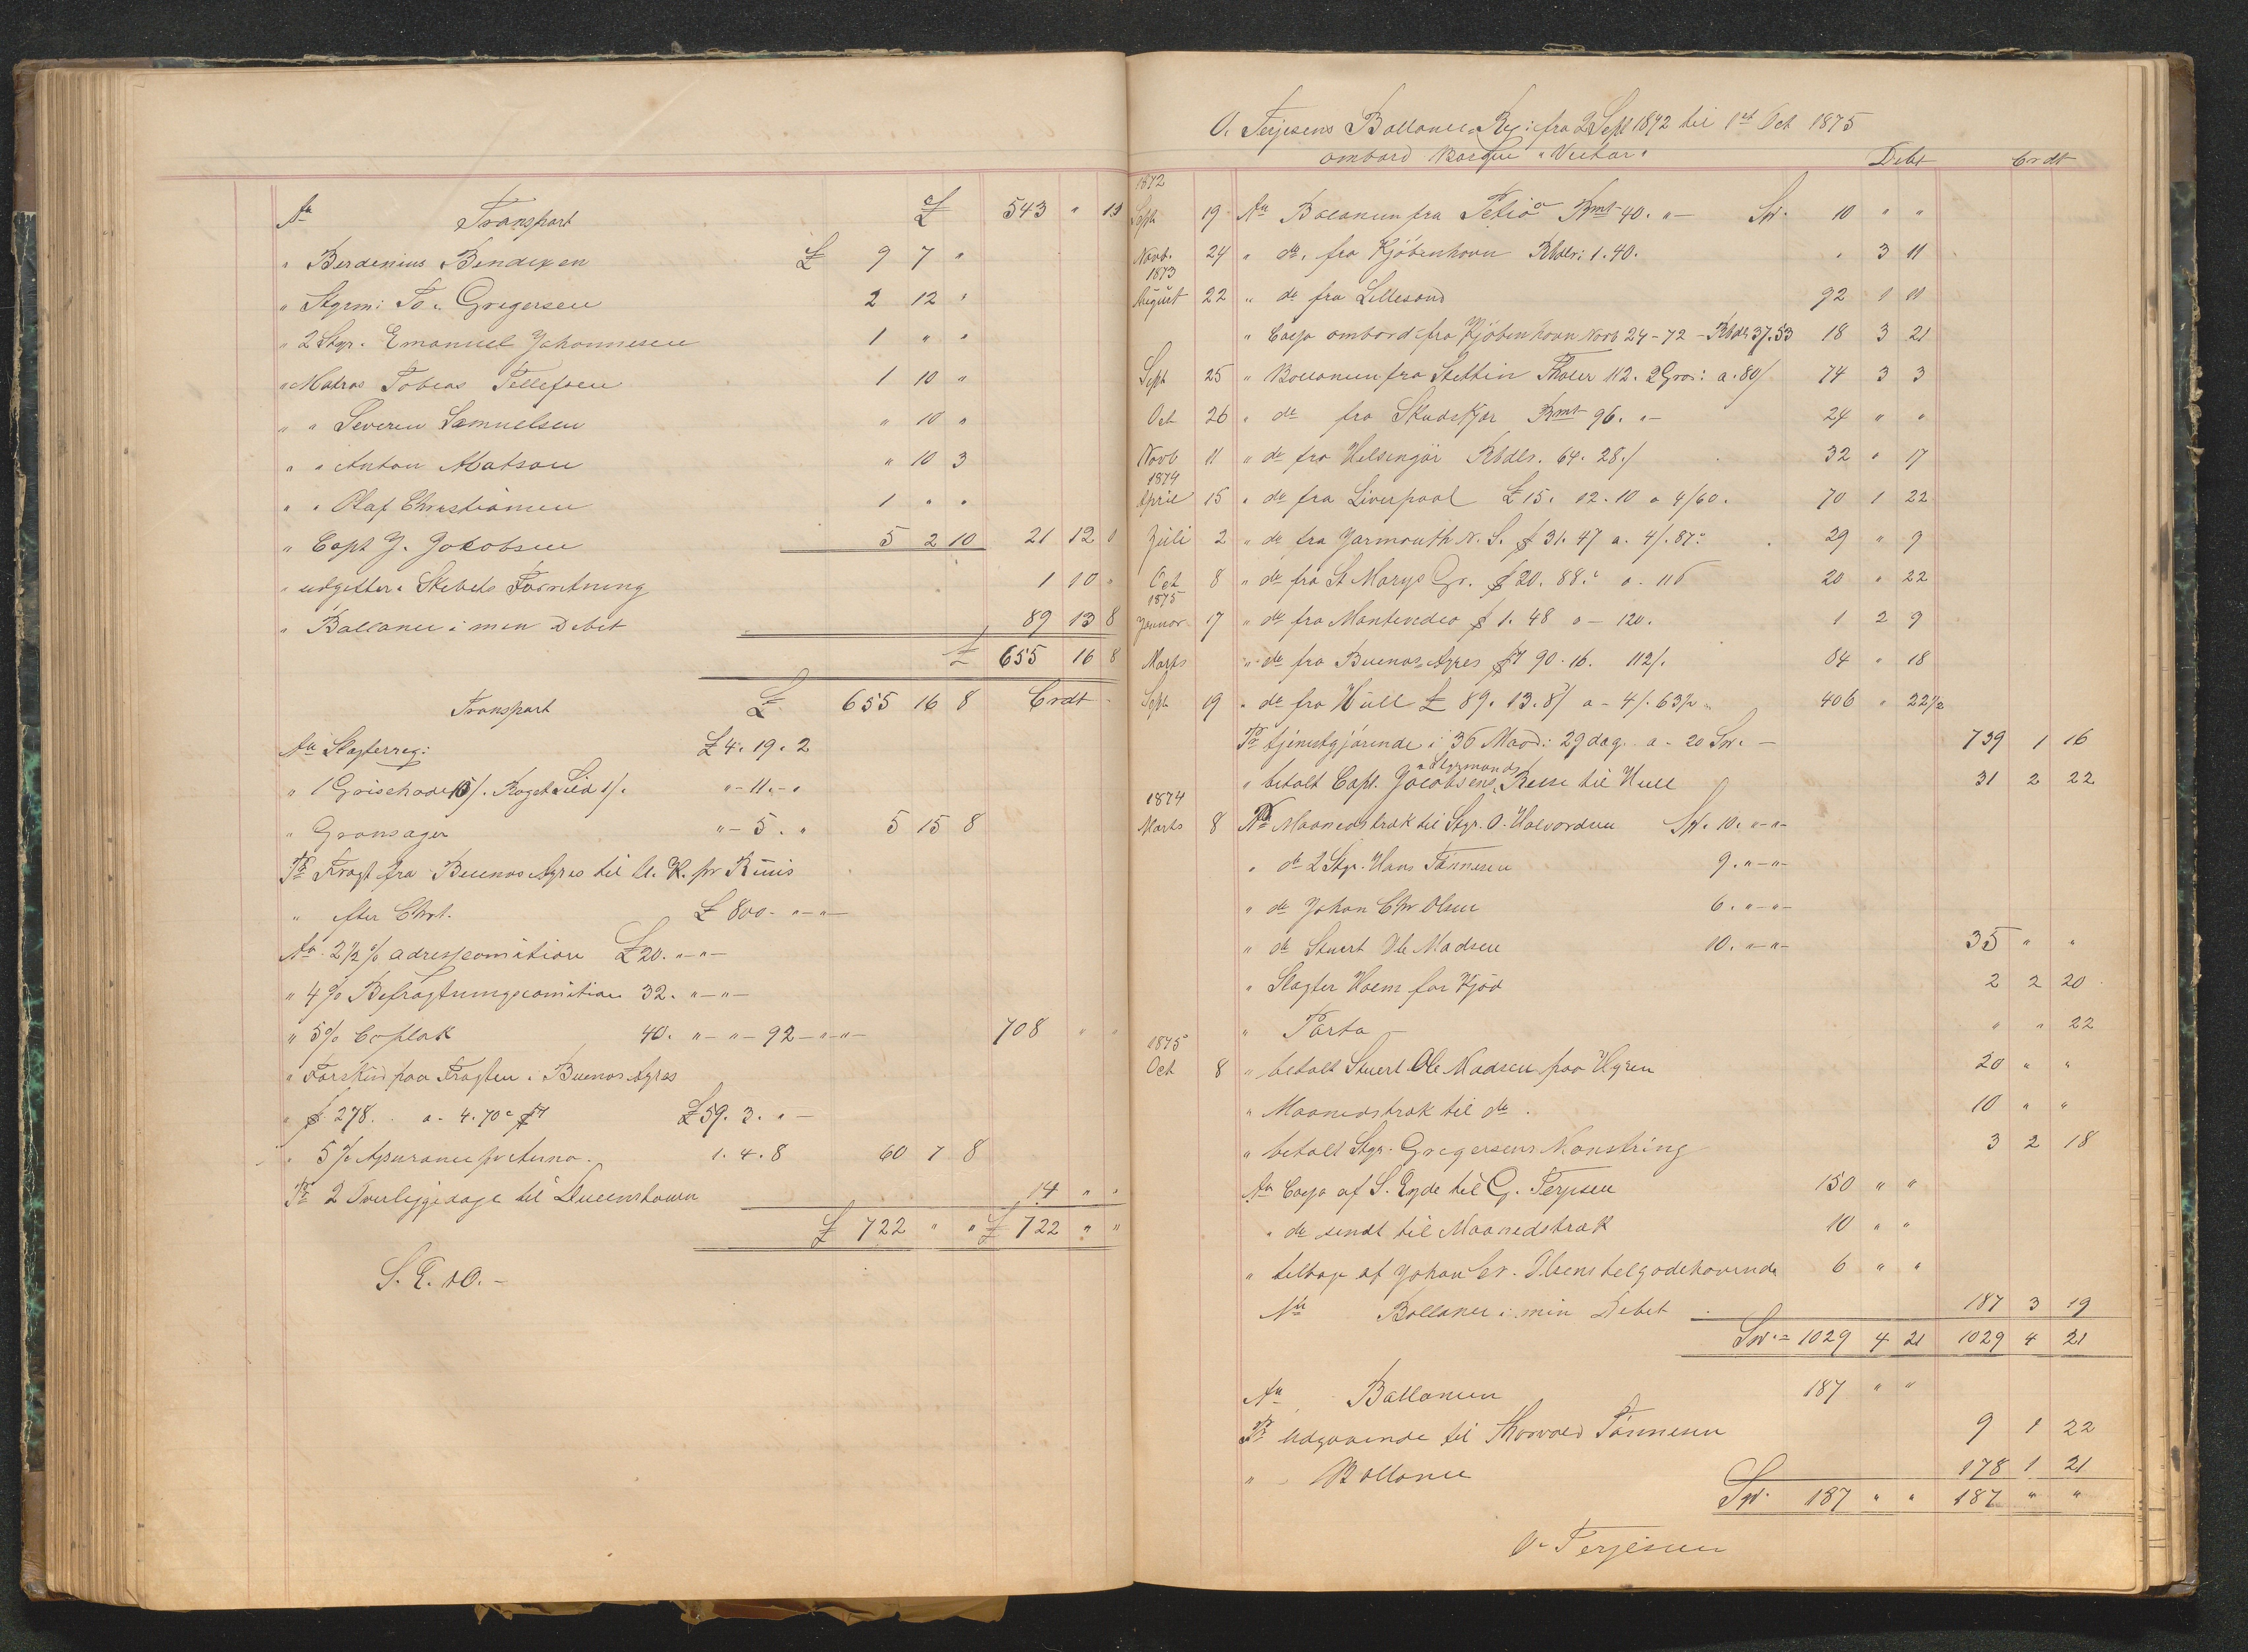 An Transport £ 543 " 13
" Berdinius Bendixen £ 9 7 "
" Styrm: To. Gregersen 2 12 "
" 2 Styr. Emanuel Johannesen 1 " "
" Matros Tobias Tellefsen 1 10 "
" " Severin Samuelsen " 10 "
" " Anton Matson " 10 3
" " Olaf Christiansen 1 " "
" Capt J. Jacobsen 5 2 10 21 12 1
" udgifter. Skibets Forretning 1 10 "
" Ballance i min Debet 89 13 8
£ 655 16 8
Transport £ 655 16 8 Crdt
An Slagterreg: £ 4. 19. 2
" 1 Griisehode 10/. Roget Sild 1/. " - 11. - "
" Grønsager " - 5. " 5 15 8
Pr Fragt fra Buenos Ayres til U. K. pr Ruiis
" efter Chrt. £ 800. " - " -
An 2 1/2 % adressecomition £ 20. " - " -
" 4 % Befragtningscomition 32. " - " -
" 5 % Coplak 40. " - " - 92 - " - " - 708 " "
" Forskud paa Fragten i Buenos Ayres
" $ 278. a - 4. 70 c £ 59. 3. " -
" 5 % Assurance pr Anno. 1. 4. 8 60 7 8
Pr 2 Overliggedage til Queenstown 14 " "
£ 722 " " £ 722 " "
S. E. & O. -
O. Terjesens Ballance Reg: fra 2 Sept 1872 til 1st Oct 1875
ombord Barque "Nectar" Debt Crdt
1872
Sept 19 An Ballancen fra Rmt 40. " - Sp. 10 " "
Novb. 24 " do. fra Kjöbenhavn Rbdlr: 1. 40. " 3 11
1873
August 22 " do fra Lillesand 92 1 11
" Cassa ombord fra Kjöbenhavn Novb 24 - 72 - Rbdl 37. 53 18 3 21
Sept 25 " Ballancen fra Stettin Thaler 112. 2 Gros: a. 80/ 74 3 3
Oct 26 " do fra Rmt 96. " - 24 " "
Novb 11 " do fra Helsingör Rbdlr. 64. 28./ 32 " 17
1874
April 15 " do fra Liverpool £ 15. 12. 10 a 4/60. 70 1 22
Juli 2 " do fra Yarmouth N. S. $ 31. 47 a. 4/. 87. 29 " 9
Oct 8 " do fra St Marys Gr. $ 20. 88. c a. 116 20 " 22
1875
Januar 17 " do fra Montevideo $ 1. 48 a - 120. 1 2 9
Marts " do fra Buenos Ayres 90. 16. 112/. 84 " 18
Sept 19 " do fra Hull £ 89. 13. 8/ a - 4/. 63/2 406 " 22 1/2
Pr tjenestgjörende i 36 Maad: 29 dag. a - 20 Sp. - 739 1 16
" betalt Capt. Jacobsens " Styrmands Reise til Hull 31 2 22
1874
Marts 8 Pr Maanedstræk til Styr. O. Halvorsen Sp. 10. " - " -
" do 2 Styr. Hans Tönnesen 9. " - " -
" do Johan Chr Olsen 6. " - " -
" do Stuert Ole Madsen 10. " - " - 35 " "
" Slagter Holm for Kjöd 2 2 20
" Porto - " " 22
1875
Oct 8 " betalt Stuert Ole Madsen paa Hyren 20 " "
" Maanedstræk til do. 10 " "
" betalt Styr. Gregersens Mönstring 3 2 18
An Cassa af S. Eyde til G. Terjesen 150 " "
" do sendt til Maanedstræk 10 " "
" tilbage af Johan Cr. Olsens tilgodehavende 6 " "
An Ballance i min Debet 187 3 19
Sp. = 1029 4 21 1029 4 21
An Ballancen 187 " "
Pr Udgaaende til Thorvald Tönnesen 9 1 22
" Ballance 178 1 21
Sp. 187 " " 187 " "
O. Terjesen